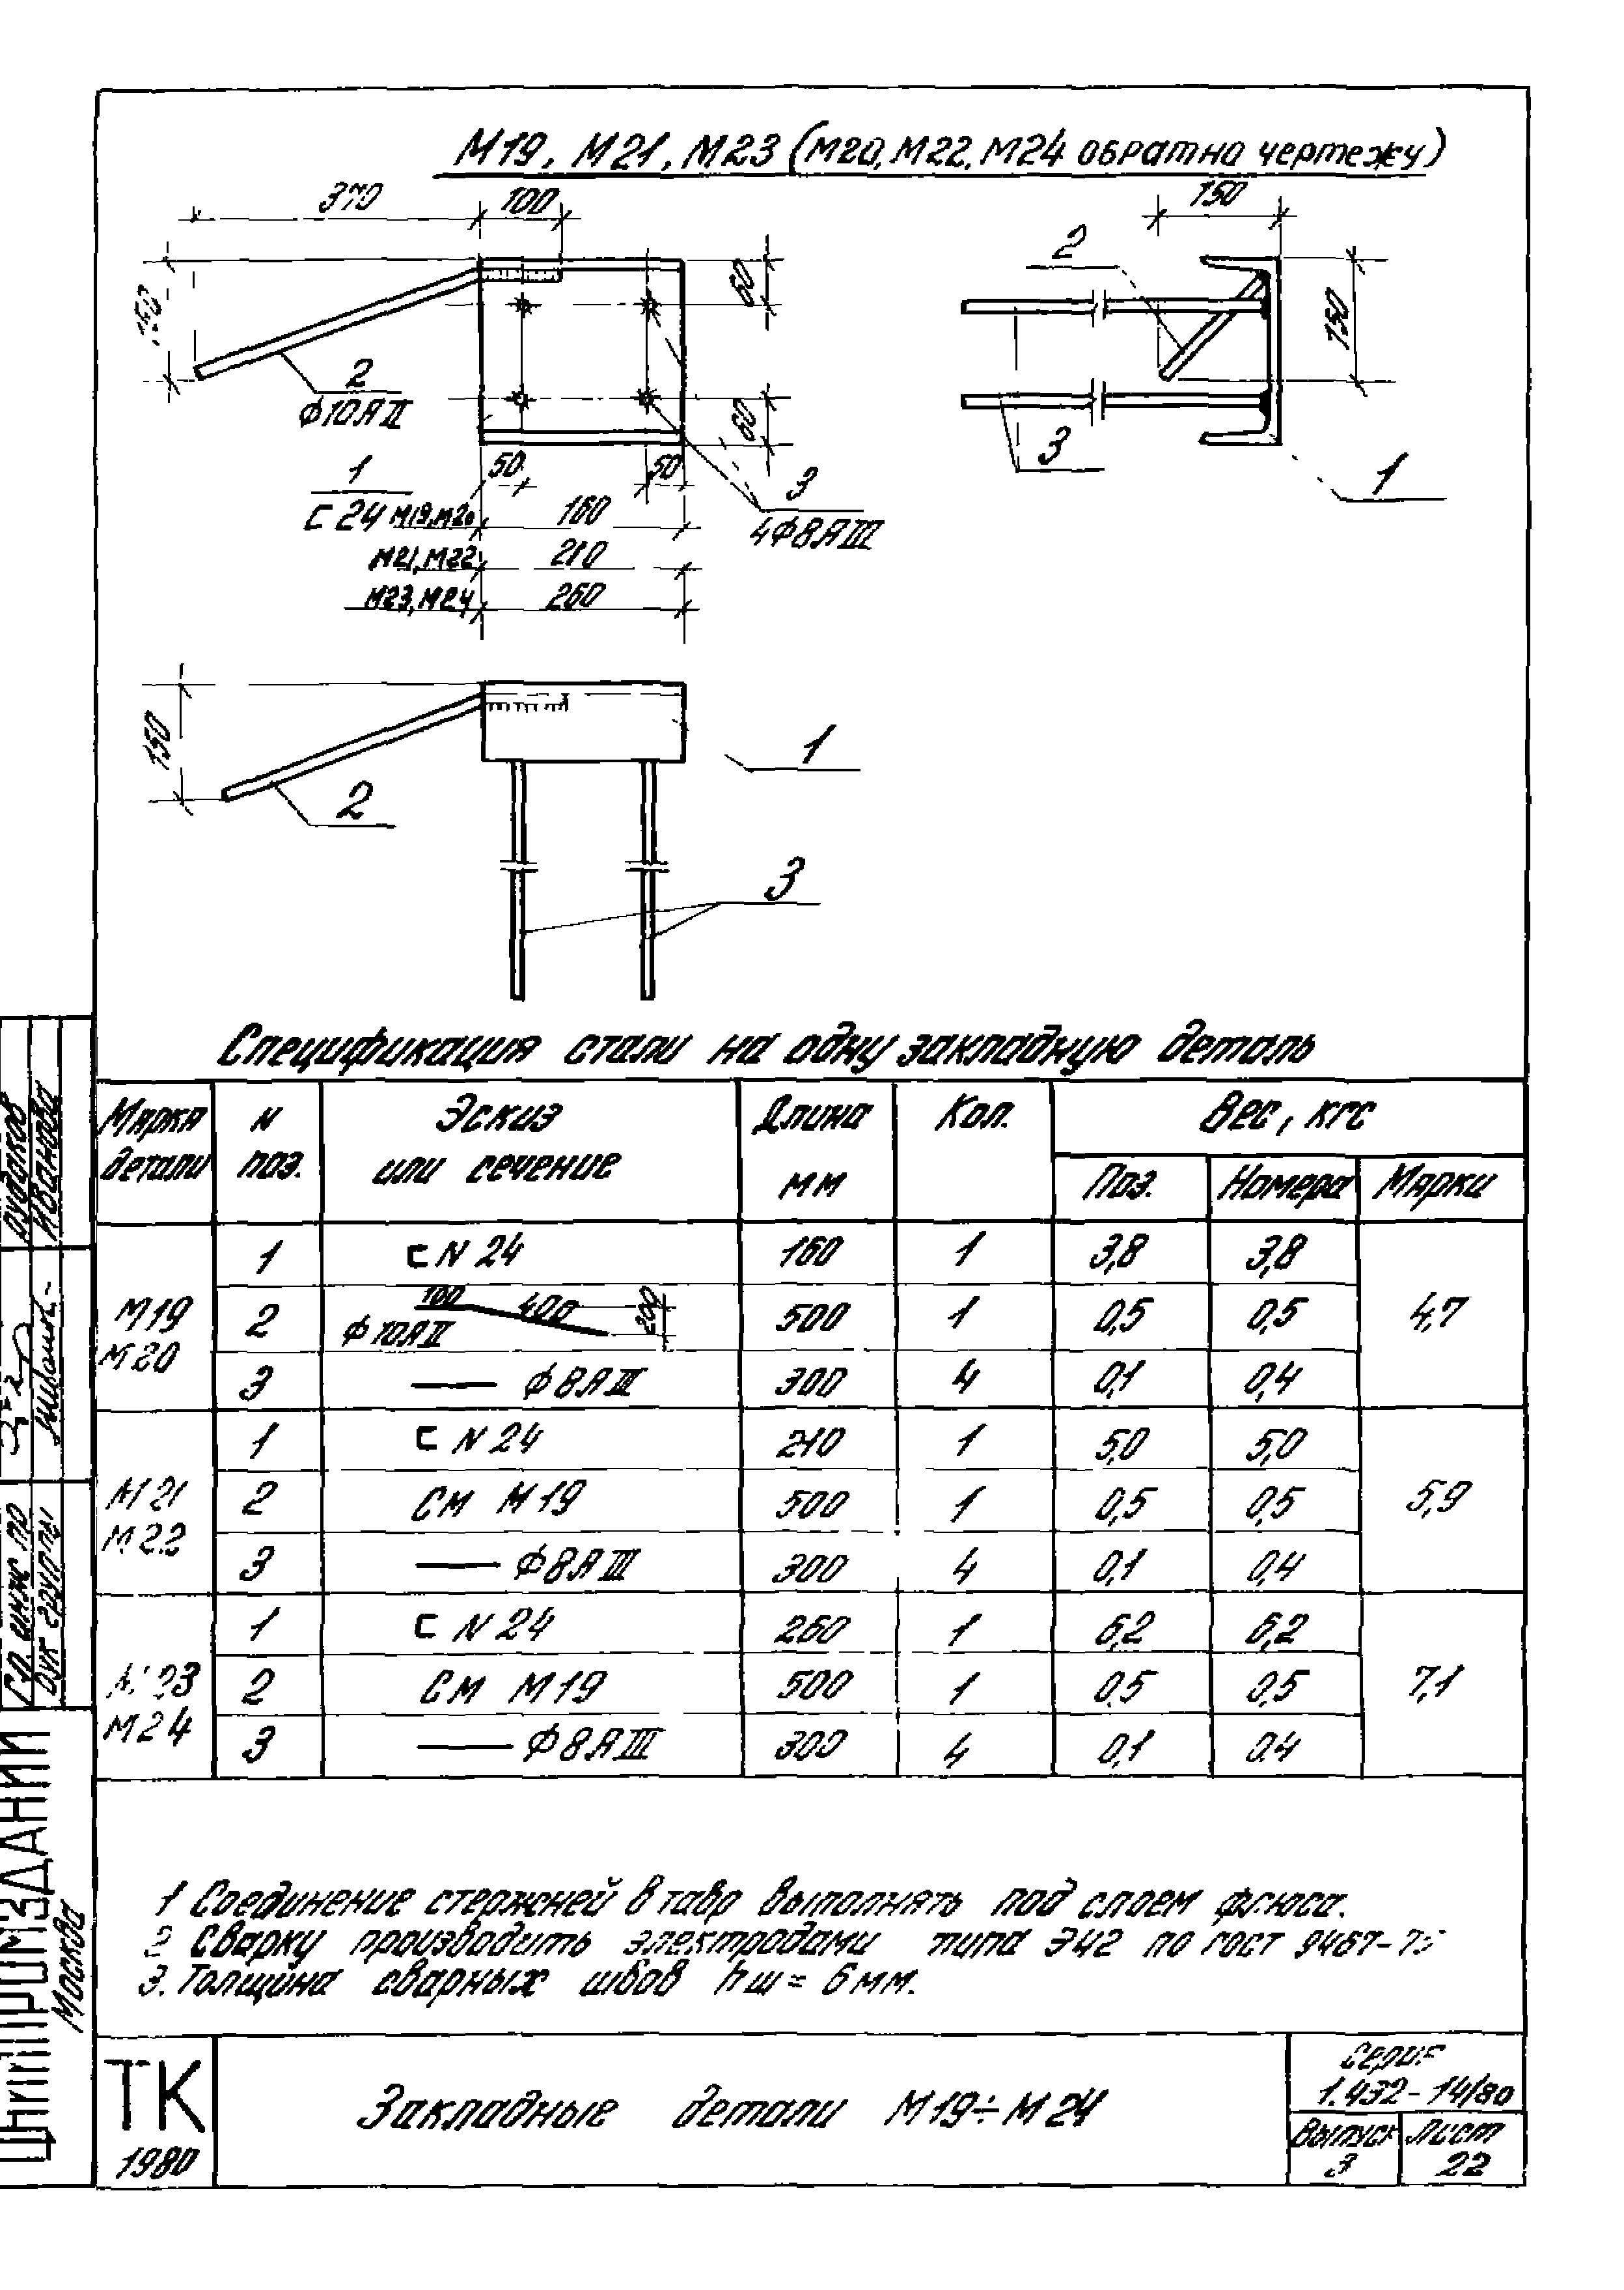 М19, М21, М23 (М20, М22, М24 обратно чертежу)
100
150
60
2
Ф10АII
2
150
50
50
60
3
4Ф8АIII
3
1
1
С 24
М19, М20
160
М21, М22
210
М23, М24
260
150
2
1
3
Спецификация стали на одну закладную деталь
Марка детали
N поз.
Эскиз или сечение
Длина мм
Кол.
Вес, кгс
Поз.
Номера
Марки
М19 М20
1 С N 24 160 1 3,8 3,8
2 Ф10АII 100 400 200 500 1 0,5 0,5 4,7
3 Ф8АIII 300 4 0,1 0,4
М21 М22
1 С N 24 210 1 5,0 5,0
2 См М19 500 1 0,5 0,5 5,9
3 Ф8АIII 300 4 0,1 0,4
М23 М24
1 С N 24 260 1 6,2 6,2
2 См М19 500 1 0,5 0,5 7,1
3 Ф8АIII 300 4 0,1 0,4
1 Соединение стержней в тавр выполнять под слоем флюса.
2 Сварку производить электродами типа Э42 по гост 9467-
3. Толщина сварных швов hш = 6 мм.
ТК
1980
Закладные детали М19÷М24
Серия
1.432-14/80
Выпуск
3
Лист
22
Иванова
Рук группы
Москва